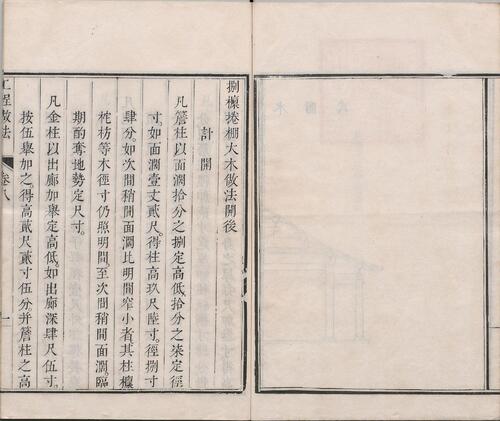 捌檁捲棚大木做法開後
計開
凡簷柱以面濶拾分之捌定高低拾分之柒定徑
寸如面濶壹丈貳尺得柱高玖尺陸寸徑捌寸
肆分如次間稍間面濶比明間窄小者其柱檁
柁枋等木徑寸仍照明間至次間稍間面濶臨
期酌奪地勢定尺寸
凡金柱以出廊加舉定高低如出廊深肆尺伍寸
按伍舉加之得高貳尺貳寸伍分并簷柱之高
工程做法
卷八
一